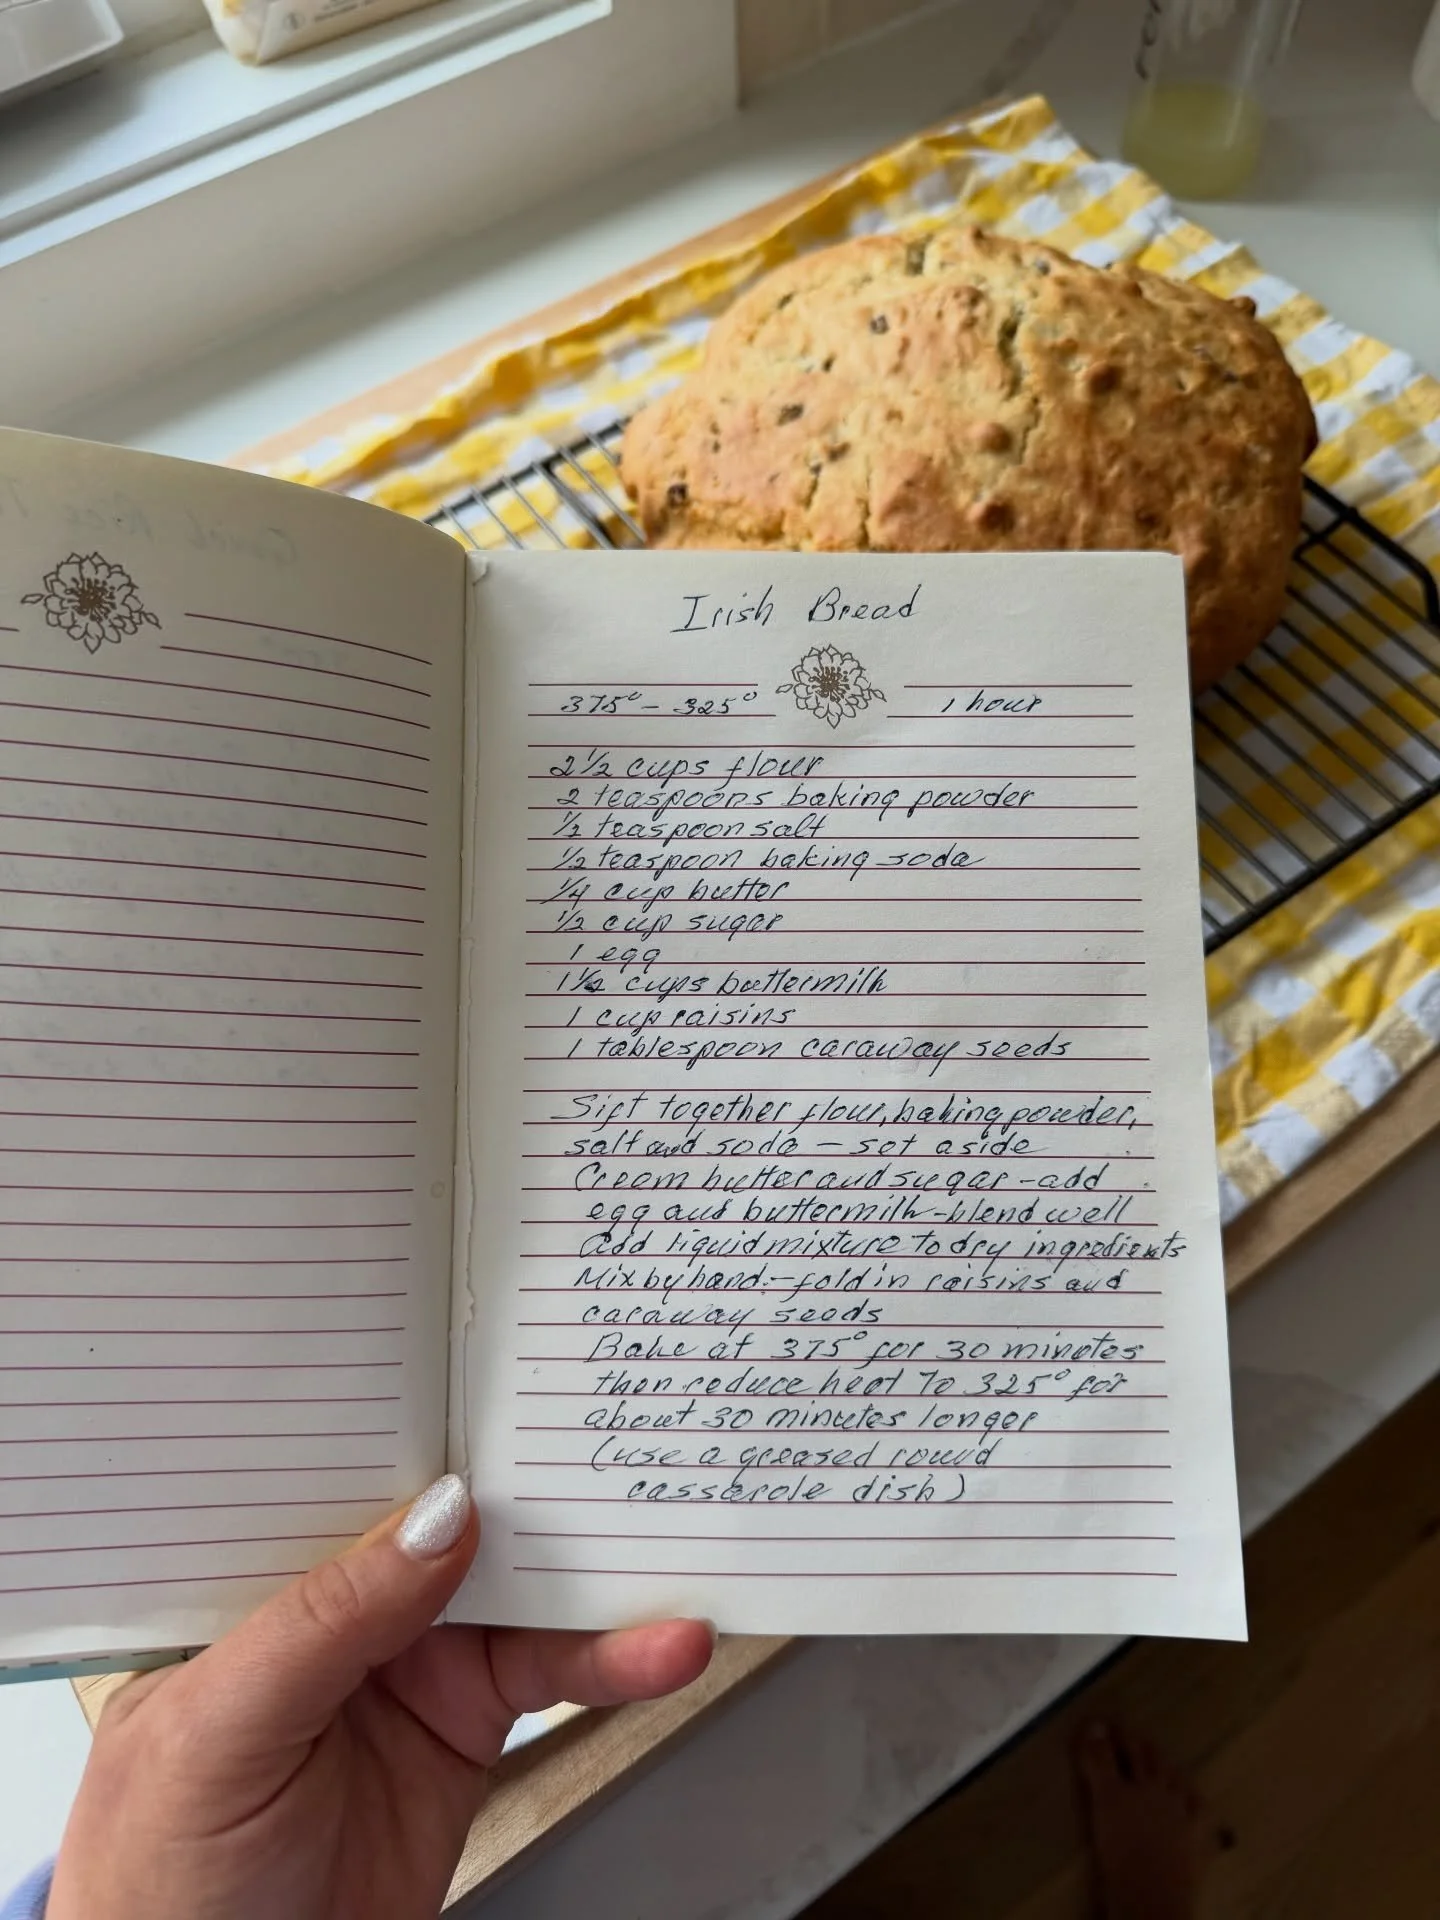 Irish Bread
375° - 325° 1 hour
2 1/2 cups flour
2 teaspoons baking powder
1/2 teaspoon salt
1/2 teaspoon baking soda
1/4 cup butter
1/2 cup sugar
1 egg
1 1/2 cups buttermilk
1 cup raisins
1 tablespoon caraway seeds
Sift together flour, baking powder,
salt and soda – set aside
Cream butter and sugar – add
egg and buttermilk – blend well
Add liquid mixture to dry ingredients
Mix by hand – fold in raisins and
caraway seeds
Bake at 375° for 30 minutes
then reduce heat to 325° for
about 30 minutes longer
(use a greased round
casserole dish)